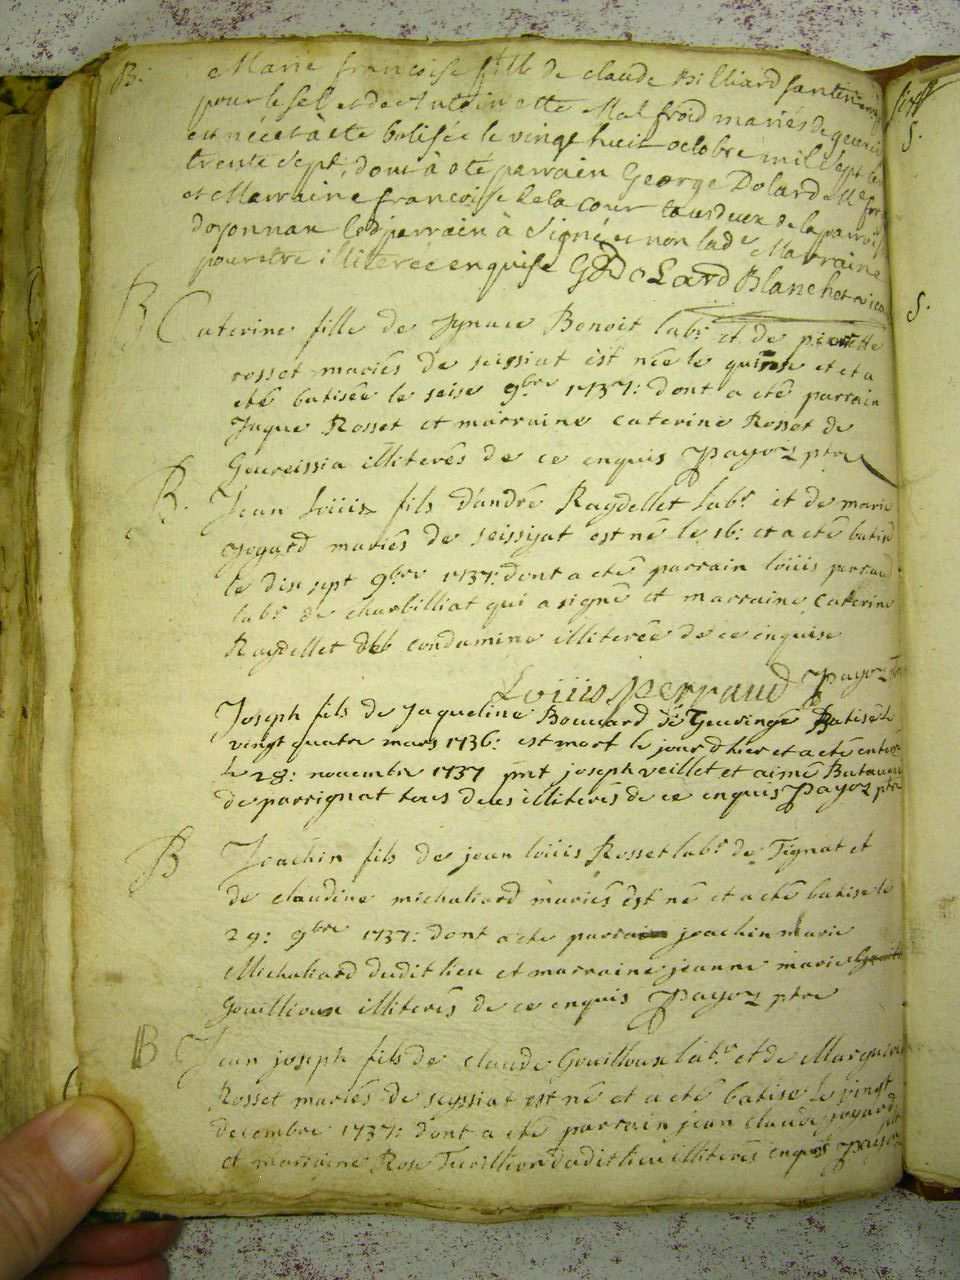 B. Marie francoise fille de claude Billiard
pour le sel et de Antoinette Mal froid mariés de
est née et à été batisée le vingt huit octobre mil sept
trente sept, dont à eté parrain George Dolard
et Marraine francoise De la cour tous deux de la parroisse
doyonnan led. parrain à signé et non lad. Marraine
pour etre illiteree enquise G Dolard Blanchet
B Caterine fille de Ignace Benoit lab.r et de pierrette
rosset mariés de seissiat est née le quinse et et a
eté batisée le seise 9bre 1737: dont a eté parrain
Jaque Rosset et marraine caterine Rosset de
Geureissia illiterés de ce enquis Payoz ptre
B. Jean loüis fils d'andré Raydellet lab.r et de marie
Joyard mariés de seissiat est né le 16: et a eté batisé
le dix sept 9bre 1737: dont a eté parrain loüis perraud
lab.r de charbilliat qui a signé et marraine caterine
Raydellet de condamine illiterée de ce enquise
Loüiis perraud Payoz
Joseph fils de Jaqueline Bouuard de Geuvingé Batisé le
vingt quatre mars 1736: est mort le jour d'hier et a eté enteré
le 28: novembre 1737 pnt joseph veillet et aimé
de parrignat tous deus illiterés de ce enquis Payoz ptre
B Joachin fils de jean loüis Rosset lab.r de Tignat et
de claudine michaliard mariés est né et a eté batisé le
29: 9bre 1737: dont a eté parrain joachin marie
Michaliard dudit lieu et marraine jeanne marie
Gouilloux illiterés de ce enquis Payoz ptre
B Jean joseph fils de claude Gouilloux lab.r et de Marguerite
Rosset mariés de seyssiat est né et a eté batisé le vingt
decembre 1737: dont a eté parrain jean claude joyard
et marraine Rose dudit lieu illiterés enquis Payoz
S.
S.